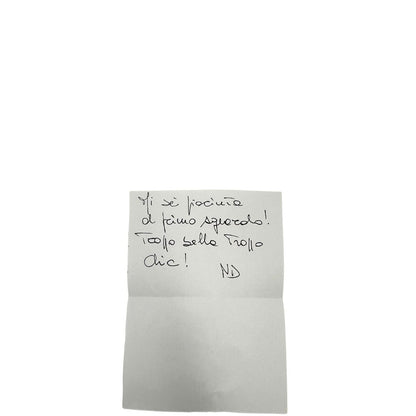 Mi sè piaciuta
al primo sguardo!
Troppo bella Troppo
chic!
ND